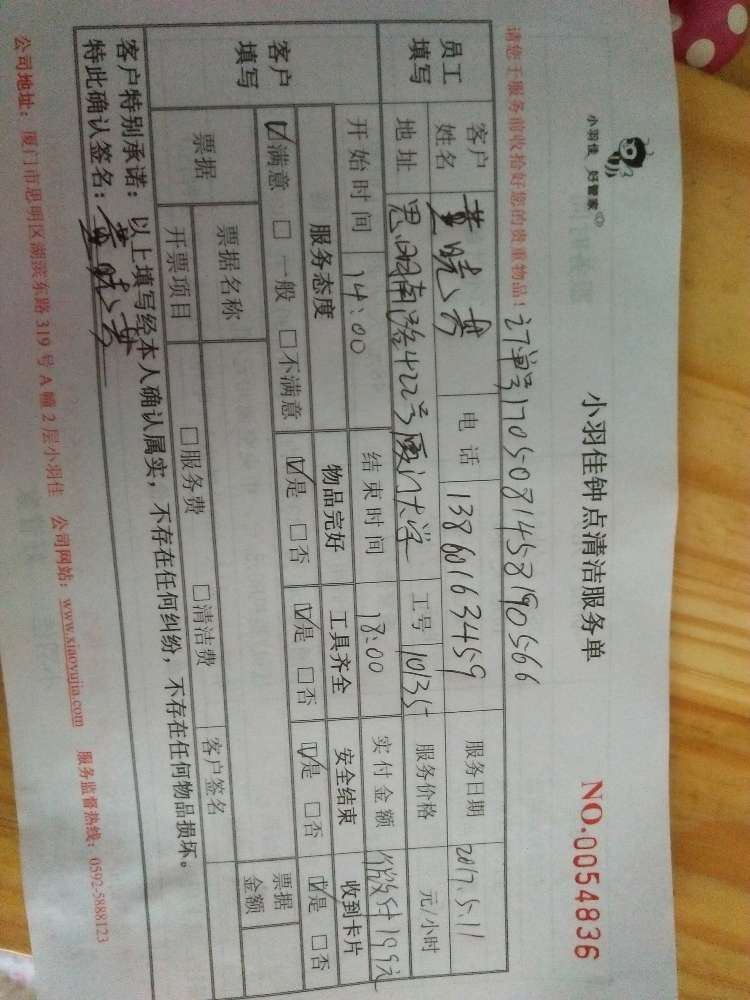 小羽佳 好管家
小羽佳钟点清洁服务单
NO.0054836
请您于服务前收拾好您的贵重物品！ 订单号1705081458190566
员工填写 客户姓名 黄晓 电话 13860163459 服务日期 2017.5.11
地址 思明南路422号厦门大学 工号 101351 服务价格 元/小时
客户填写 开始时间 14:00 结束时间 18:00 实付金额 微付199元
服务态度 物品完好 工具齐全 安全结束 收到卡片
☑满意 □一般 □不满意 ☑是 □否 ☑是 □否 ☑是 □否 ☑是 □否
票据 票据名称 客户签名 票据金额
开票项目 □服务费 □清洁费
客户特别承诺：以上填写经本人确认属实，不存在任何纠纷，不存在任何物品损坏。
特此确认签名：黄晓
公司地址：厦门市思明区湖滨东路319号A幢2层小羽佳 公司网站：www.xiaoyujia.com 服务监督热线：0592-5888123